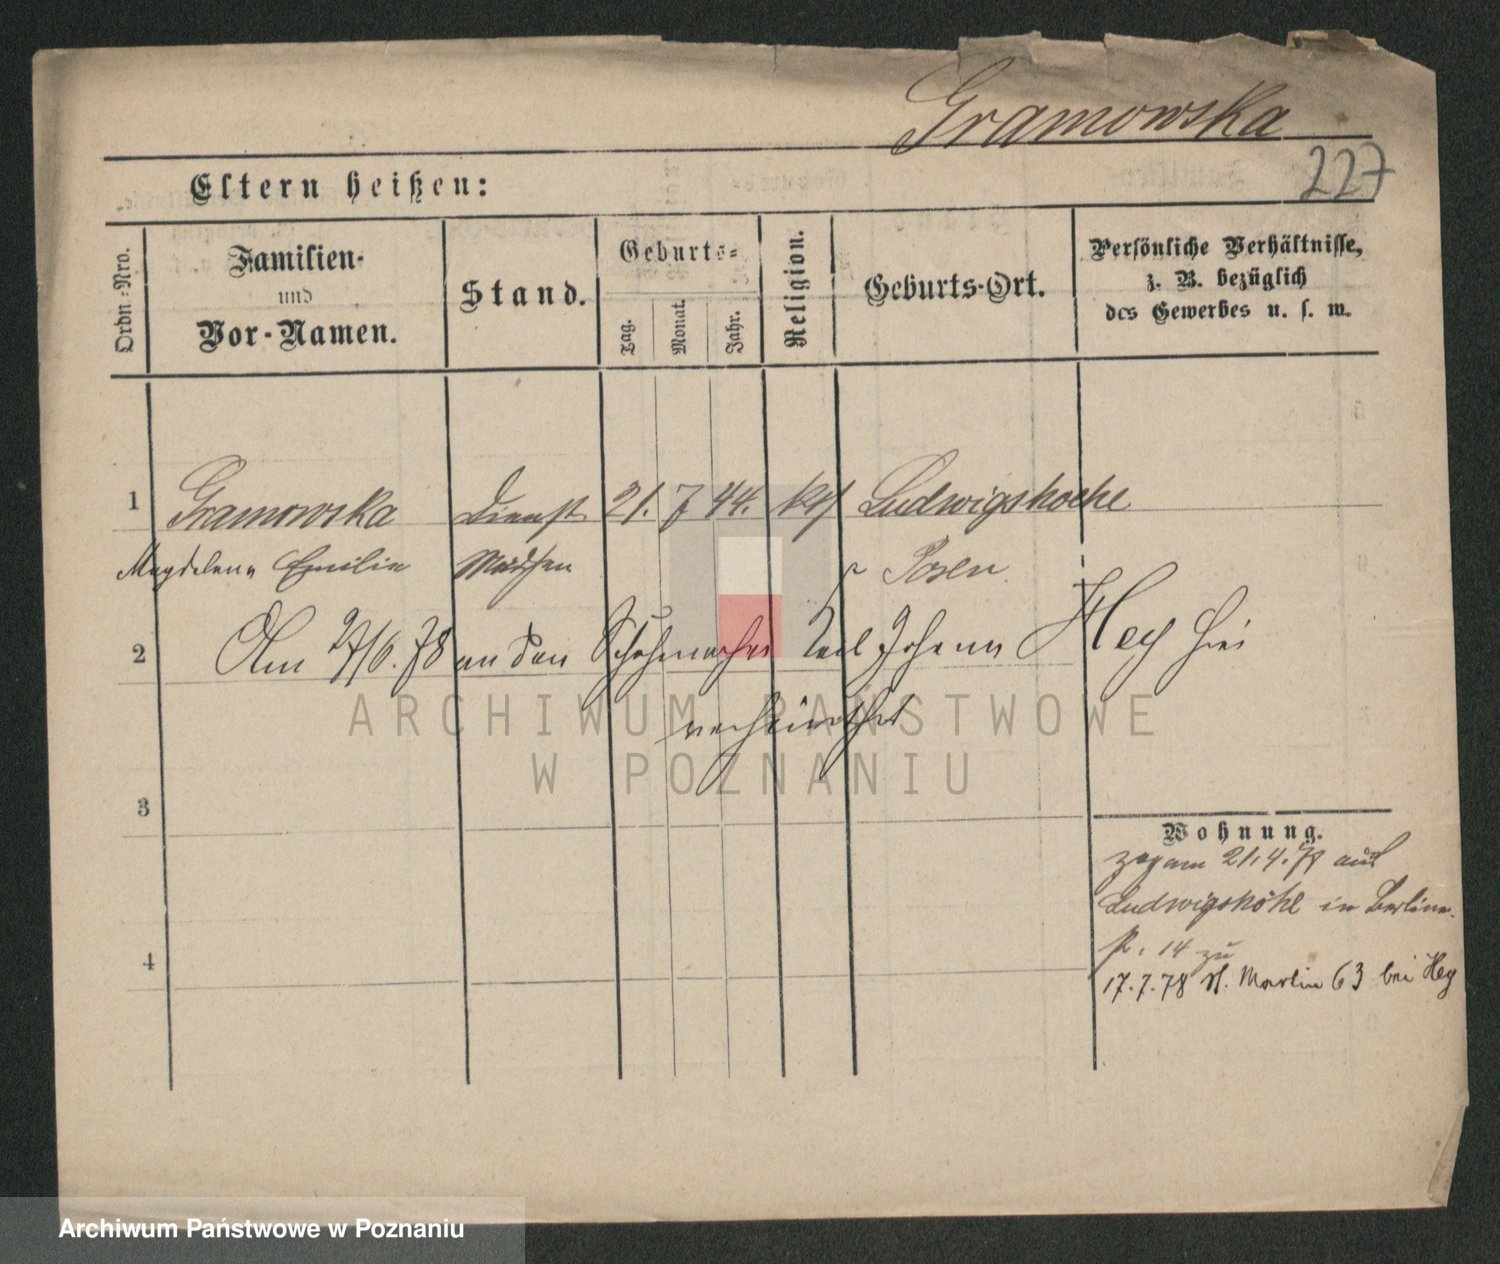 Gramowska
227
Eltern heißen:
Ordn.-Nro.
Familien-
und
Vor-Namen.
Stand.
Geburts-
Tag.
Monat.
Jahr.
Religion.
Geburts-Ort.
Persönliche Verhältnisse,
z. B. bezüglich
des Gewerbes u. s. w.
1 Gramowska Dienst 21. 7 44. kth Ludwigshoehe
Magdalena Emilie Mädchen Posen
2 Am 27/6. 78 an den Schuhmacher Karl Johann Hey hier
verheirathet
3
Wohnung.
zog am 21.4.78 aus
Ludwigshöhe in Berliner
Str. 14 zu
4
17.7.78 St. Martin 63 bei Hey
ARCHIWUM PAŃSTWOWE
W POZNANIU
Archiwum Państwowe w Poznaniu